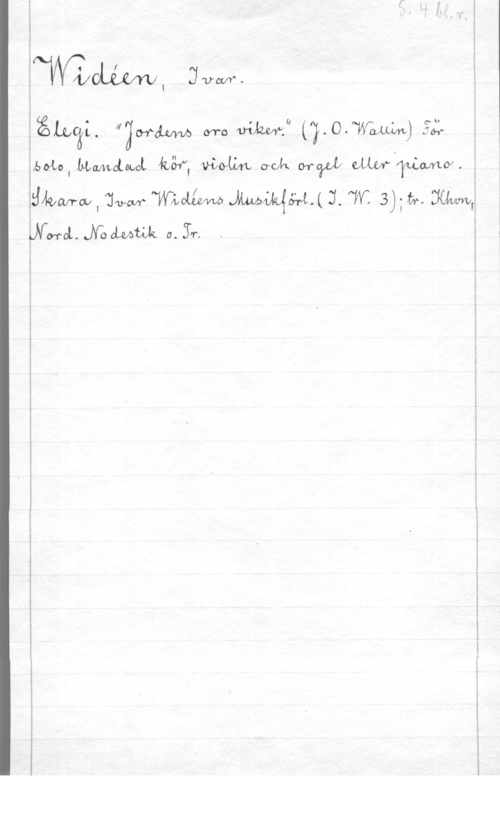 S. 4 bl. r.
Widéen, Ivar.
Elegi. "Jordens oro viker." (J. O. Wallin) För
solo, blandad kör, violin och orgel eller piano.
Skara, Ivar Widéens Musikförl. (I. W. 3); tr. Khvn,
Nord. Nodestik o. Tr.